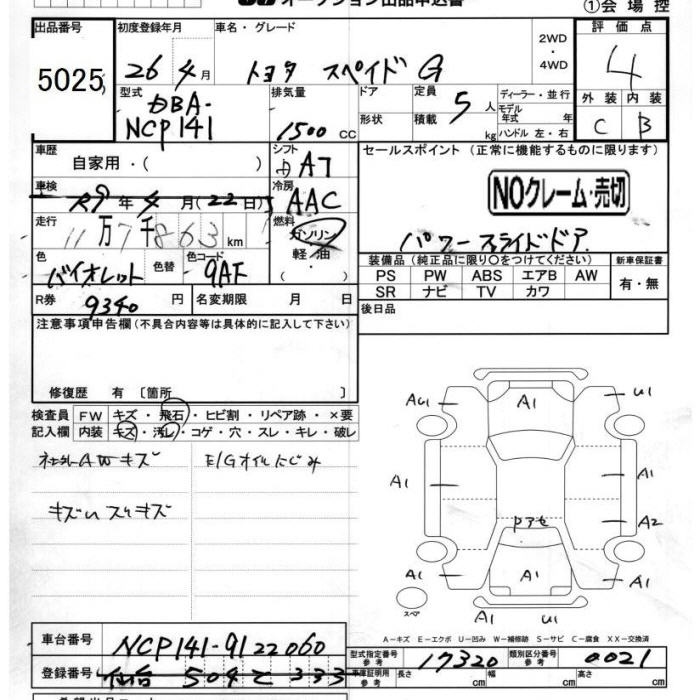 オークション出品申込書
①会場控
出品番号 初度登録年月 車名・グレード 2WD・4WD 評価点
5025 26年4月 トヨタ スペイド G 4
型式 排気量 ドア 定員 ディーラー・並行 外装 内装
DBA-NCP141 1500cc 形状 積載 5人 kg モデル年式 年式 ハンドル 左・右 C B
車歴 シフト セールスポイント (正常に機能するものに限ります)
自家用・( ) A7
車検 R9年4月(22日) 冷房 AAC
NOクレーム・売切
走行 11万7千863km 燃料 ガソリン・軽油
パワースライドドア
色 色替 色コード 装備品(純正品に限り○をつけてください) 新車保証書
バイオレット 9AF PS PW ABS エアB AW 有・無
SR ナビ TV カワ
R券 9340円 名変期限 月 日 後日品
注意事項申告欄(不具合内容等は具体的に記入して下さい)
修復歴 有 〔箇所 〕
検査員 FW キズ・飛石・ヒビ割・リペア跡・×要
記入欄 内装 キズ・汚レ・コゲ・穴・スレ・キレ・破レ
AWキズ E/Gオイルにじみ
キズ スリキズ
AU1 A1 U1
A1 A1
A2
A1 A1 A1
スペア A1 U1
A-キズ E-エクボ U-凹み W-補修跡 S-サビ C-腐食 XX-交換済
車台番号 NCP141-9122060 型式指定番号 参考 17320 類別区分番号 参考 0021
登録番号 仙台 504 て 333 車庫証明用 参考 長さ cm 幅 cm 高さ cm